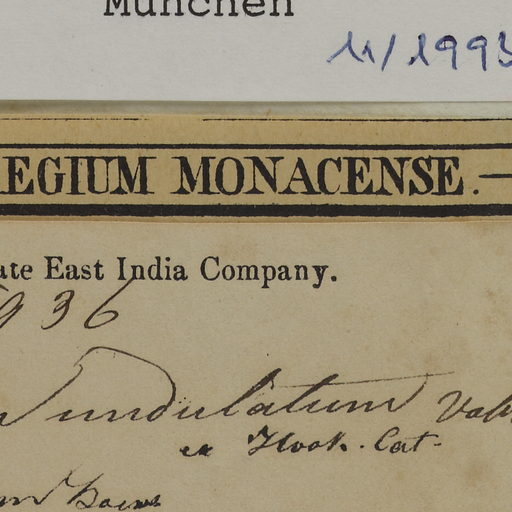 München
11/1993
EGIUM MONACENSE.—
ate East India Company.
936
undulatum Vahl
ex Hook. Cat.